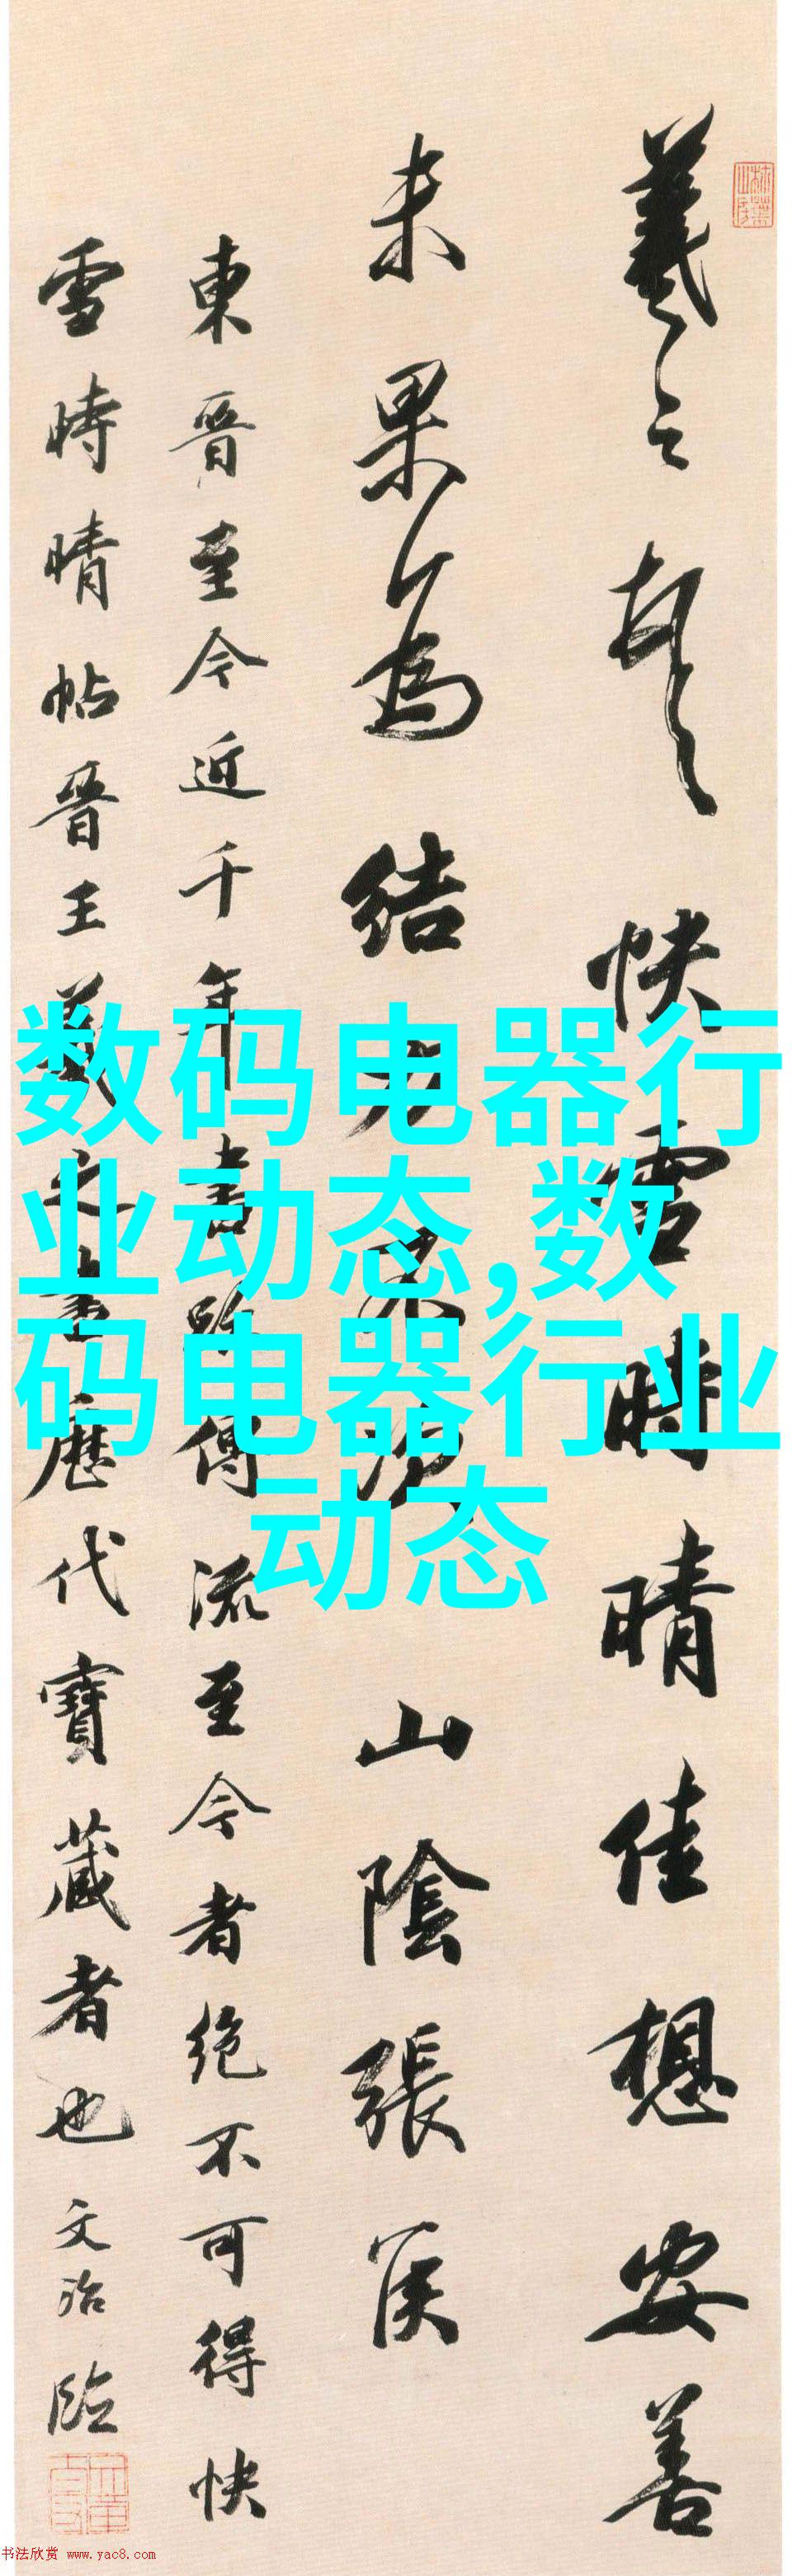 羲之頓首快雪時晴佳想安善
未果為結力不次山陰張侯
東晉至今近千年書跡傳流至今者絶不可得快
雪時晴帖晉王羲之書歷代寶藏者也文治臨
数码电器行
业动态,数
码电器行业
动态
书法欣赏 www.yac8.com